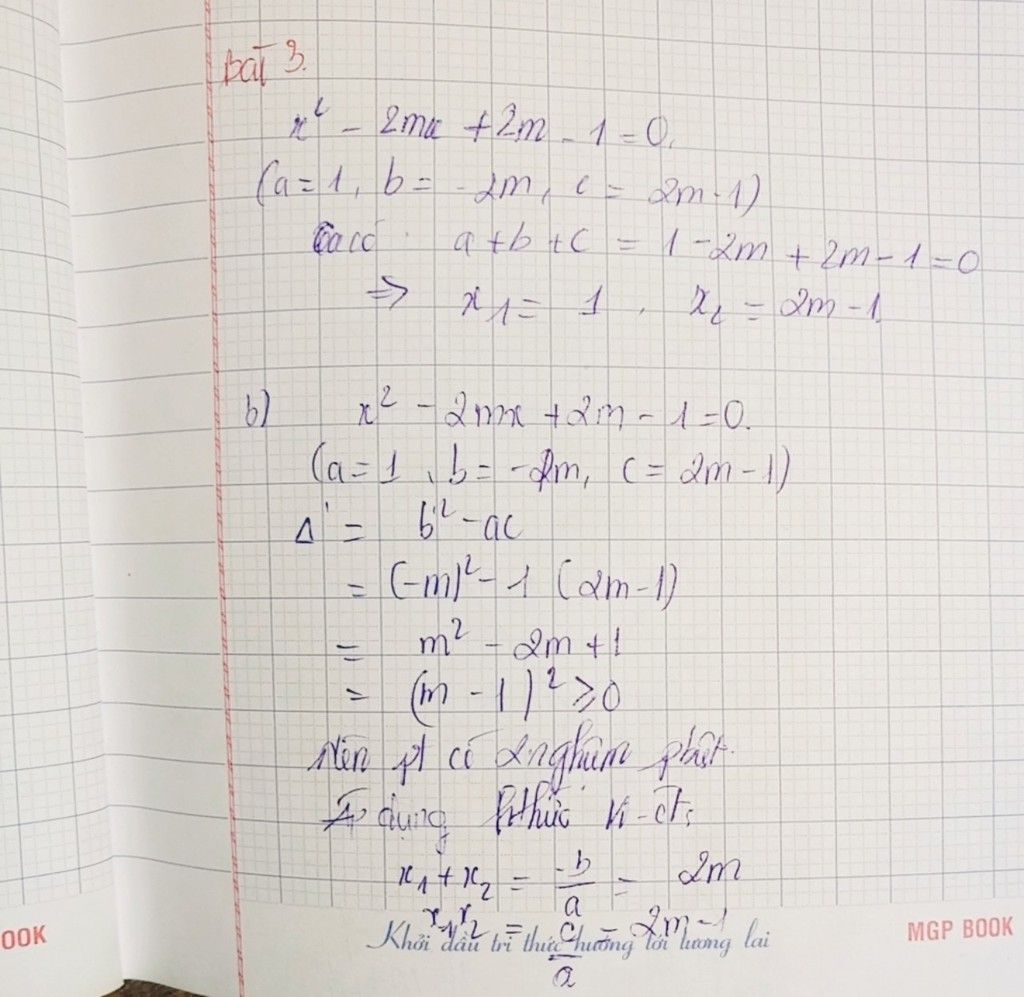 bài 3.
x² - 2mx + 2m - 1 = 0.
(a = 1, b = -2m, c = 2m-1)
Ta có: a + b + c = 1 - 2m + 2m - 1 = 0
⇒ x₁ = 1, x₂ = 2m - 1
b) x² - 2mx + 2m - 1 = 0.
(a = 1, b = -2m, c = 2m - 1)
Δ' = b'² - ac
= (-m)² - 1 (2m-1)
= m² - 2m + 1
= (m - 1)² ≥ 0
Nên pt có 2 nghiệm pbiệt.
Áp dụng hthức Vi-ét:
x₁ + x₂ = -b/a = 2m
x₁x₂ = c/a = 2m - 1
Khởi đầu tri thức hướng tới tương lai
OOK
MGP BOOK